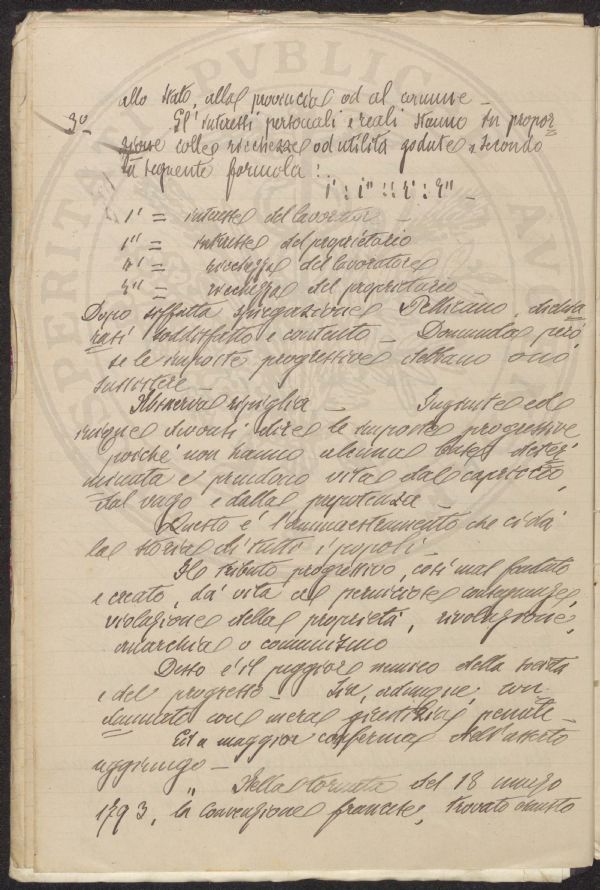 allo Stato, alla provincia od al comune –
3º Gl'interessi personali e reali stanno in propor-
zione colle ricchezze od utilità godute, secondo
la seguente formola:
i' : i'' :: r' : r''
i' = interesse del lavoratore –
i'' = interesse del proprietario
r' = ricchezza del lavoratore
r'' = ricchezza del proprietario –
Dopo siffatta spiegazione Pellicano dichia-
rasi soddisfatto e contento – Domanda però
se le imposte progressive debbano o nò
sussistere –
Minerva ripiglia – Ingiuste ed
inique devonsi dire le imposte progressive
poiché non hanno alcuna base deter-
minata e prendono vita dal capriccio,
dal vago e dalla prepotenza –
Questo è l'ammaestramento che ci dà
la storia di tutti i popoli –
Il tributo progressivo, così mal fondato
e creato, dà vita a perniciose conseguenze,
violazione della proprietà, rivoluzione,
anarchia o comunismo
Desso è il peggior nemico della società
e del progresso – Sia, adunque, con-
dannato con vera giustizia penale –
Ed a maggior conferma dell'asserto
aggiungo –
" Nella tornata del 18 marzo
1793, la Convenzione francese, trovato